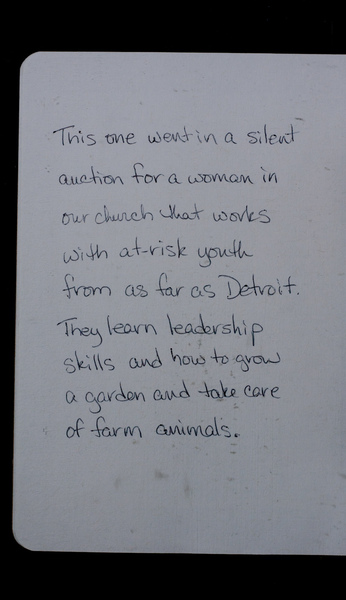 This one went in a silent
auction for a woman in
our church that works
with at-risk youth
from as far as Detroit.
They learn leadership
skills and how to grow
a garden and take care
of farm animals.